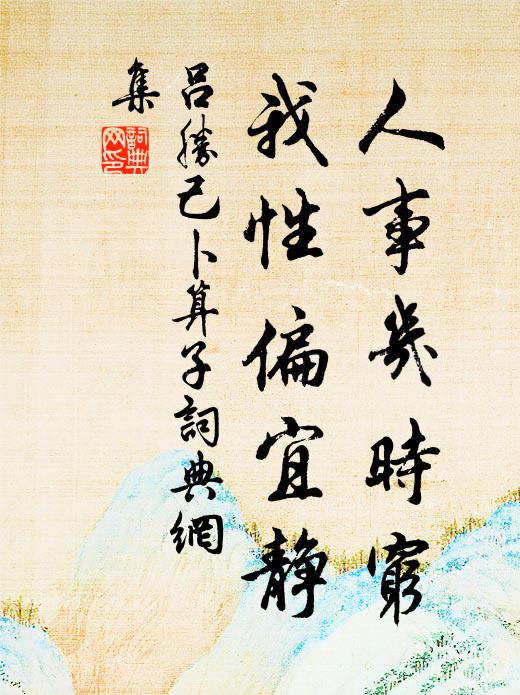 人事幾時窮
我性偏宜静
吕勝己卜算子詞典網
集
詞典网印